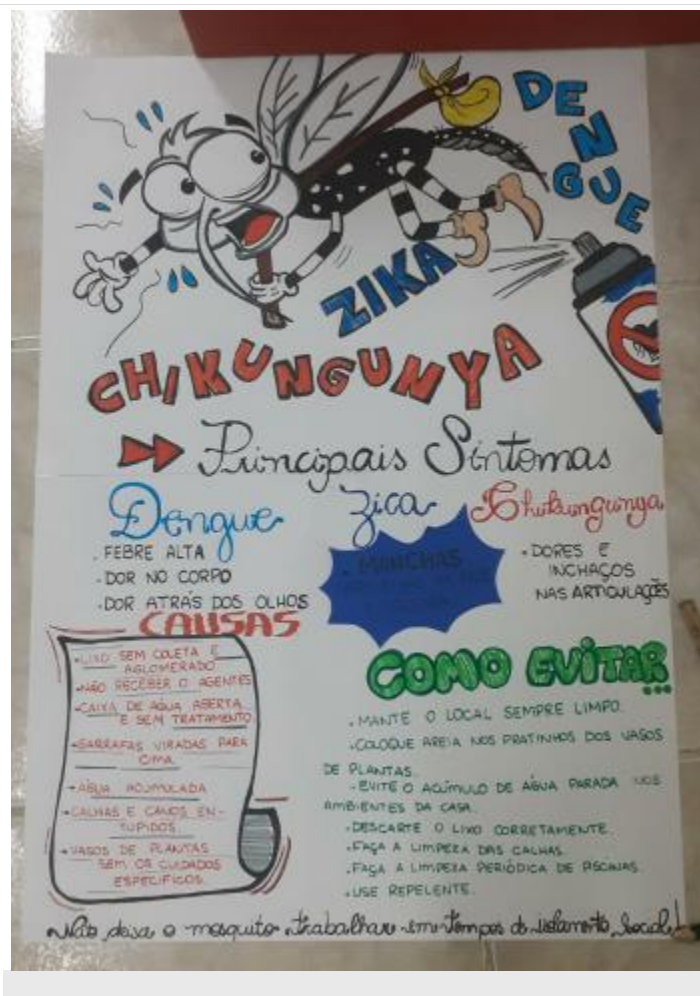 DENGUE
ZIKA
CHIKUNGUNYA
Principais Sintomas
Dengue
. FEBRE ALTA
. DOR NO CORPO
. DOR ATRÁS DOS OLHOS
Zica
. MANCHAS
Chukungunya
. DORES E
INCHAÇOS
NAS ARTICULAÇÕES
CAUSAS
LIXO SEM COLETA E
AGLOMERADO
NÃO RECEBER O AGENTES
CAIXA DE AGUA ABERTA
E SEM TRATAMENTO
GARRAFAS VIRADAS PARA
CIMA
AGUA ACUMULADA
CALHAS E CANOS EN-
TUPIDOS
VASOS DE PLANTAS
SEM OS CUIDADOS
ESPECIFICOS
COMO EVITAR...
. MANTE O LOCAL SEMPRE LIMPO.
. COLOQUE AREIA NOS PRATINHOS DOS VASOS
DE PLANTAS.
. EVITE O ACÚMULO DE ÁGUA PARADA NOS
AMBIENTES DA CASA.
. DESCARTE O LIXO CORRETAMENTE.
. FAÇA A LIMPEZA DAS CALHAS.
. FAÇA A LIMPEZA PERIÓDICA DE PISCINAS.
. USE REPELENTE.
Não deixa o mosquito trabalhar em tempos de isolamento social!